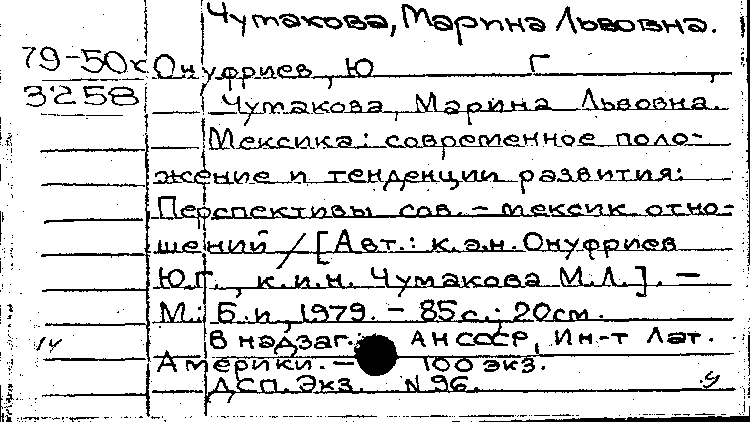 Чумакова, Марина Львовна.
79-50к Онуфриев, Ю Г
3258 Чумакова, Марина Львовна.
Мексика: современное поло-
жение и тенденции развития:
Перспективы сов. - мексик отно-
шений / [Авт.: к.э.н. Онуфриев
Ю.Г., к.и.н. Чумакова М.Л.]. —
М.: Б.и., 1979. - 85с.; 20см.
В надзаг.: АН СССР, Ин-т Лат.
14
Америки. — 100 экз.
ДСП. Экз. N 96.